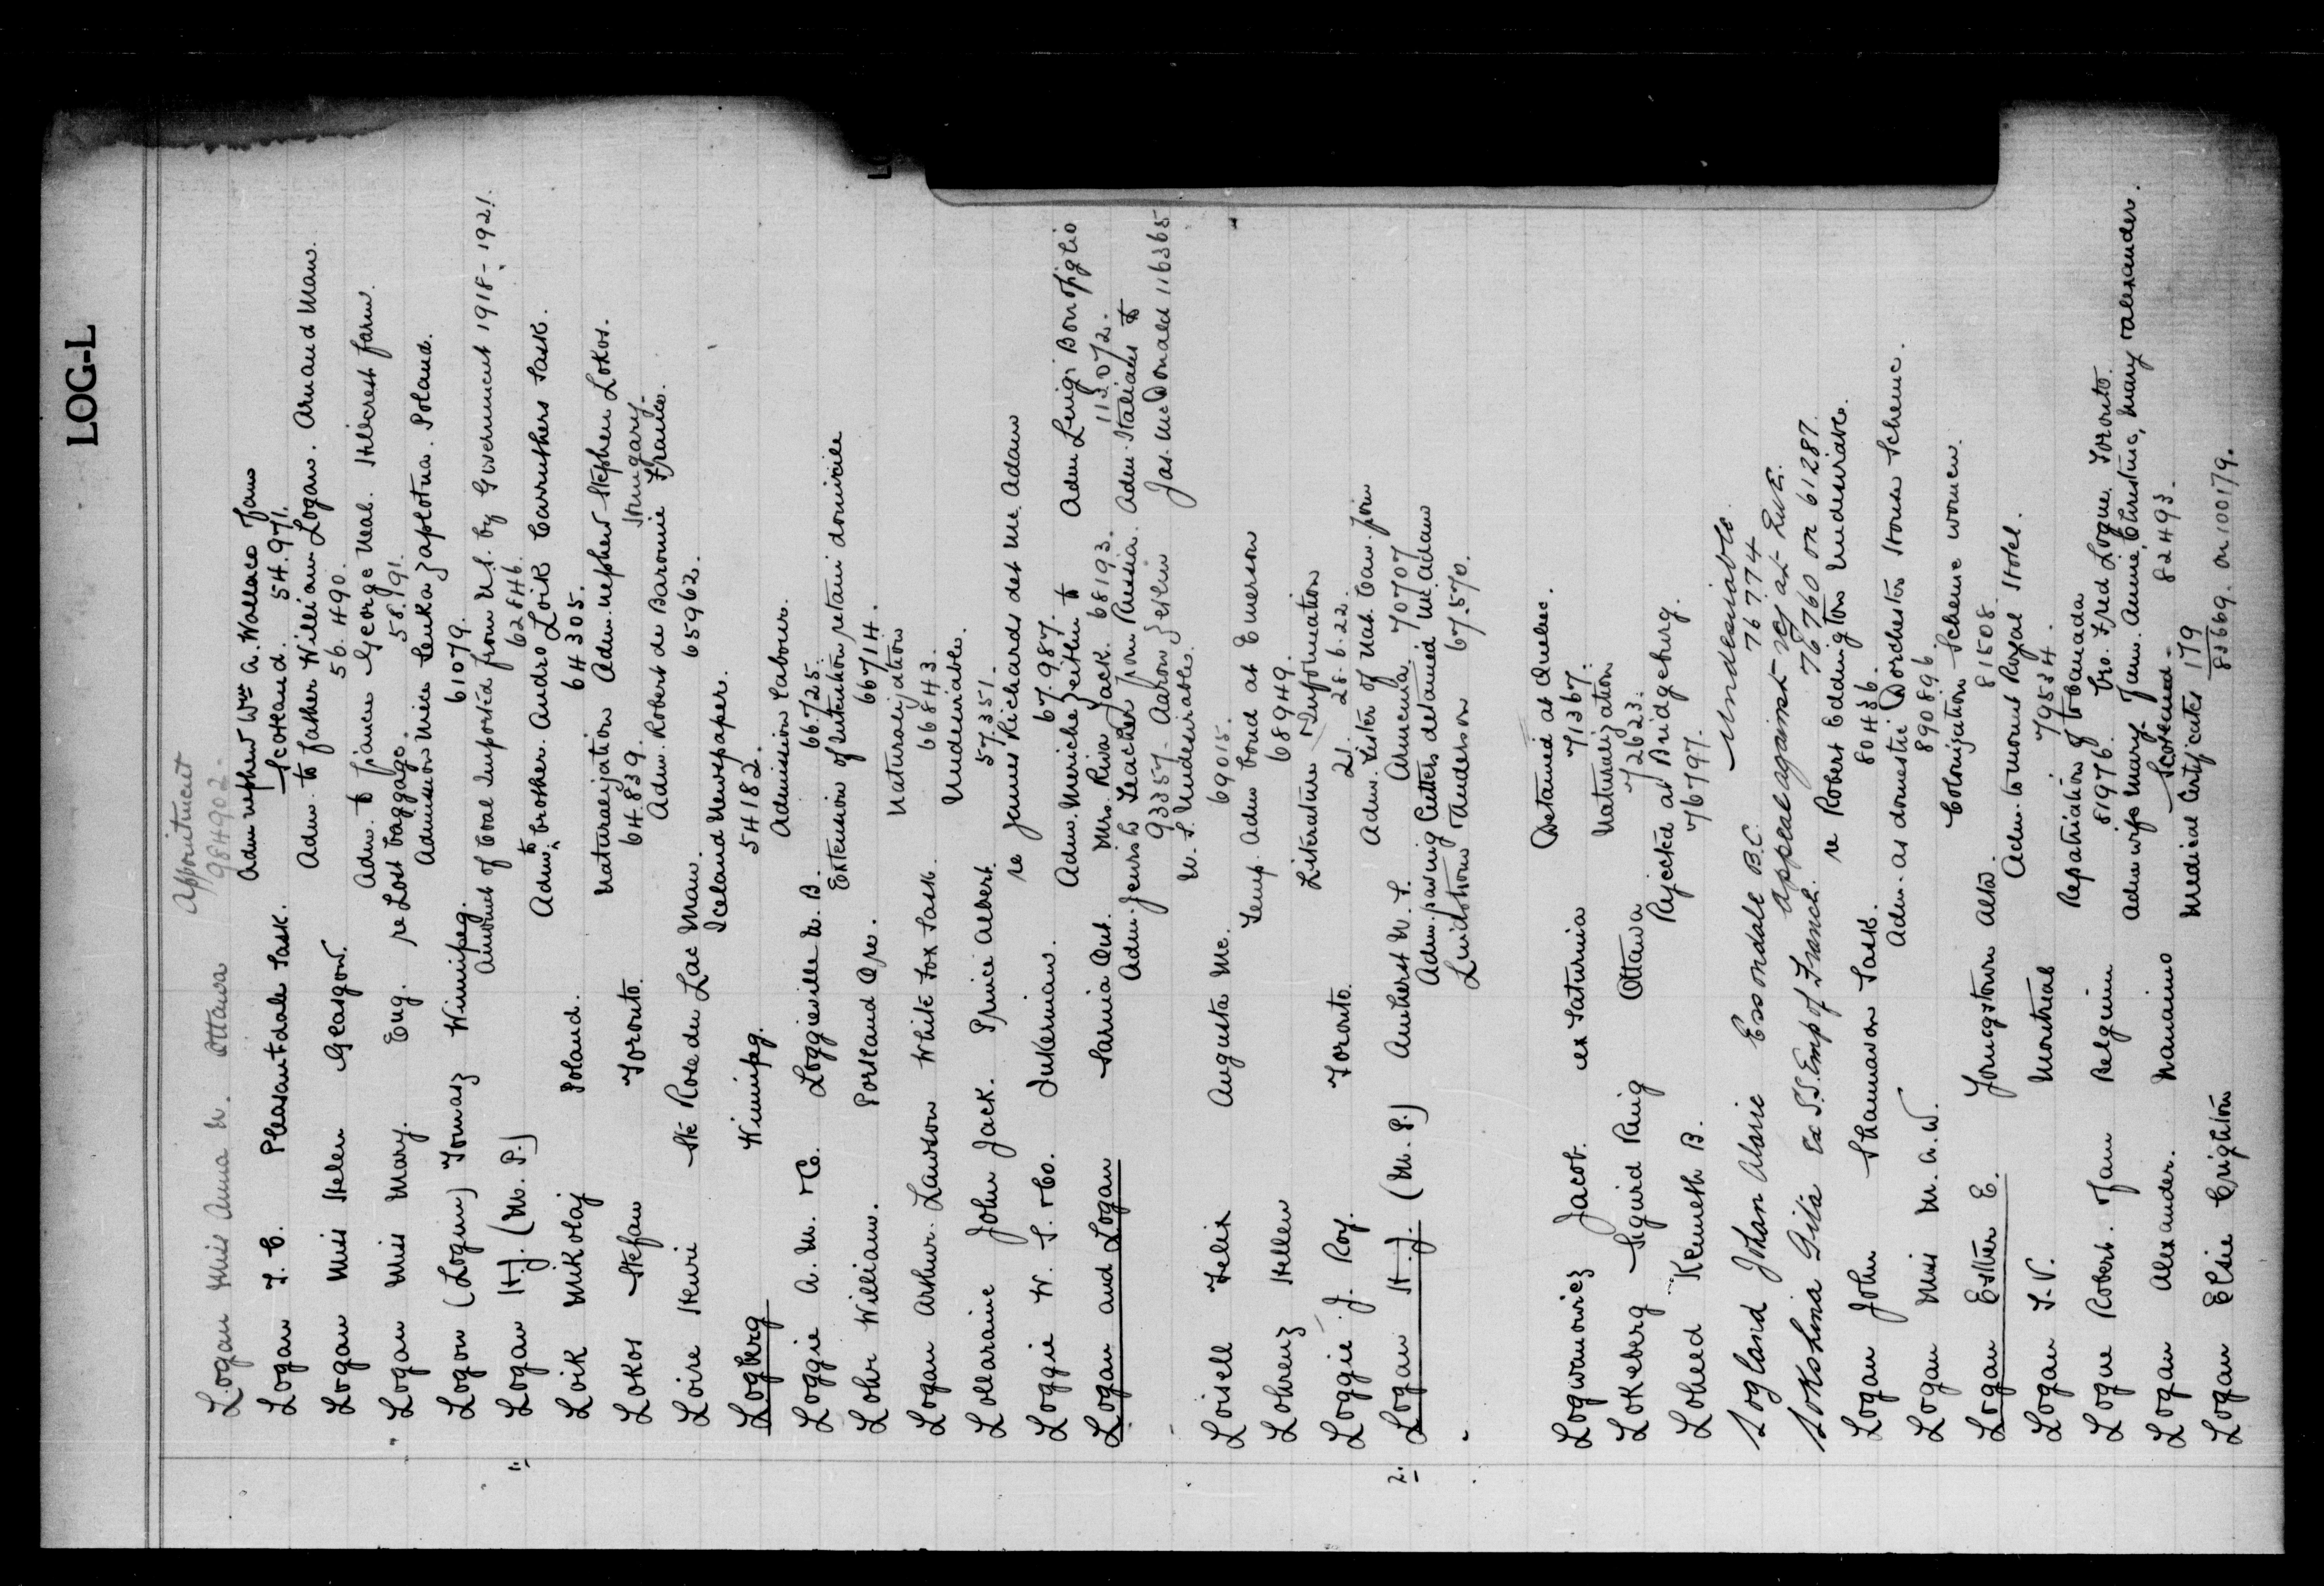 LOG-L
Appointment
Logan Miss Anna M. Ottawa 984902-
Adm nephew Wm A. Wallace from
Logan T. C. Pleasantdale Sask. Scotland. 54.971.
Adm. to father William Logan. Arnaud Man.
Logan Miss Helen Glasgow. 56.490.
Adm. to fiancee George Neal. Hillcrest farm.
Logan Miss Mary. Eng. re Lost baggage. 58.191.
Admission niece Lenka Zaplotna. Poland.
Logon (Logun) Tomasz Winnipeg. 61079.
Amount of Coal Imported from U.S. by Government 1918-1921.
1. Logan H.J. (M. P.) 62846.
Adm. to brother Andro Loik Carruthers Sask.
Loik Mikolaj Poland. 64305.
Naturalization Adm. nephew Stephen Lokos.
Lokos Stefan Toronto. 64.839. Hungary.
Adm. Robert de Baromie France.
Loire Henri Ste Rose du Lac Man. 65962.
Iceland Newspaper.
Logberg Winnipeg. 54182.
Admission Labour.
Loggie A. M. & Co. Loggieville N. B. 66725.
Extension of intention retain domicile
Lohr William. Portland Ore. 66714.
Naturalization
Logan Arthur Lawson White Fox Sask. 66843.
Undesirable.
Lollaraine John Jack. Prince Albert. 57351.
re James Richards det Mc Adam
Loggie W. S. & Co. Inkerman. 67.987.
Adm. Meriche Zeitlin to Adm Luigi Bonofiglio
Logan and Logan Sarnia Ont. Mrs. Riva Jack. 68193. 113072.
Adm. Jewish Teacher from Russia. Adm. Italians to
93357- Aaron Zeitlin Jas. McDonald 116365
U. S. Undesirables.
Loisell Felix Augusta Me. 69015.
Temp. Adm bond at Emerson
Lohrenz Hellen 68949.
Literature & Information
Loggie J. Roy. Toronto. 21. 28.6.22.
Adm. Sister of Nah. Can. from
2. Logan H. J. (M. P.) Amherst N. S. Armenia. 70707
Adm. paving Cutters detained Mc. Adam
Lindstrom Anderson 67.570.
Detained at Quebec.
Logwanowicz Jacob. ex Saturnia 71367.
Naturalization
Lokeberg Siguird Ring Ottawa 72623.
Rejected at Bridgeburg.
Loheed Kenneth B. 76797.
Undesirable.
Logland Johan Alaric Essondale B.C. 76774
Appeal against rej at Que.
Lokshina Gita Ex S.S. Emp of French. 76760 on 61287.
re Robert Eddington Undesirable.
Logan John Shaunavon Sask. 80436.
Adm. as domestic Dorchester House Scheme.
Logan Miss M. A. W. 890896
Colonization Scheme women.
Logan Esther E. Youngstown Alta. 81508.
Adm. to mount Royal Hotel.
Logan T. V. Montreal 79534.
Repatriation to Canada
Logue Robert. from Belgium 81976. bro. Fred Logue. Toronto.
Adm wife Mary. from. Annie, Christine, Mary & Alexander.
Logan Alexander. Nanaimo Scotland- 82493.
Medical Certificates 179
Logan Elsie Crighton 83669. on 100179.